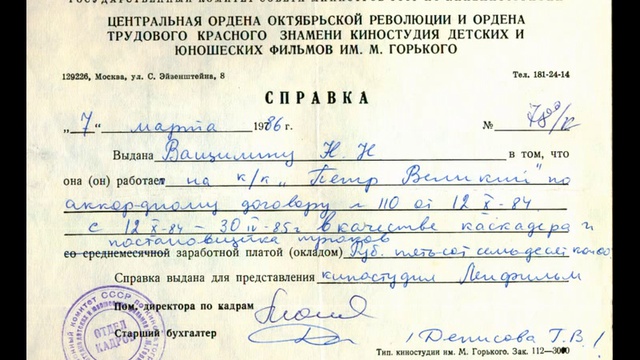 ЦЕНТРАЛЬНАЯ ОРДЕНА ОКТЯБРЬСКОЙ РЕВОЛЮЦИИ И ОРДЕНА
ТРУДОВОГО КРАСНОГО ЗНАМЕНИ КИНОСТУДИЯ ДЕТСКИХ И
ЮНОШЕСКИХ ФИЛЬМОВ ИМ. М. ГОРЬКОГО
129226, Москва, ул. С. Эйзенштейна, 8 Тел. 181-24-14
СПРАВКА
„7" марта 1986 г. №
Выдана Ващилину Н. Н в том, что
она (он) работает на к/к „Петр Великий" по
аккордному договору № 110 от 12 X-84
с 12 X-84 – 30 IV-85г в качестве каскадера и
постановщика трюков
со среднемесячной заработной платой (окладом) Руб. пятьсот семьдесят
Справка выдана для представления киностудии Ленфильм
Пом. директора по кадрам
Старший бухгалтер /Денисова Т. В/
ОТДЕЛ КАДРОВ
Тип. киностудии им М. Горького. Зак. 112—3000